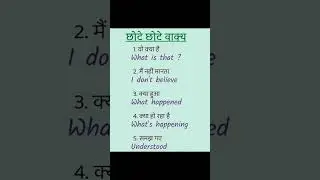 छोटे छोटे वाक्य
1. वो क्या है
What is that ?
2. मैं नहीं मानता
I don't believe
3. क्या हुआ
What happened
4. क्या हो रहा है
What's happening
5. समझ गए
Understood